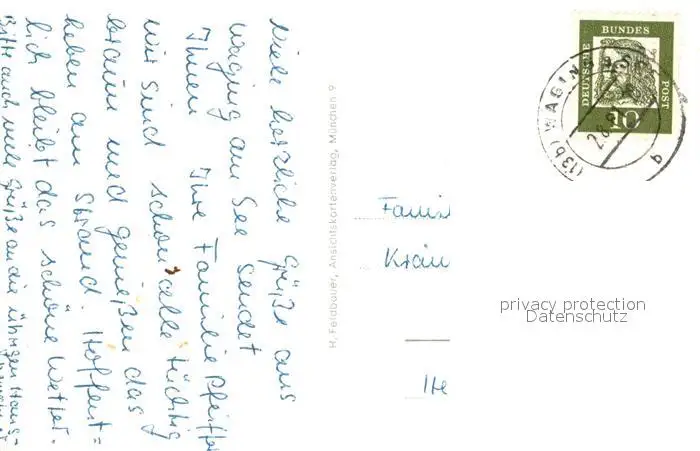 Viele herzliche Grüße aus
Waging am See sendet
Ihnen Ihre Familie Pfeiffer
Wir sind schon alle tüchtig
braun und genießen das
Leben am Strand. Hoffent=
lich bleibt das schöne Wetter.
Bitte auch viele Grüße an die übrigen Haus=
H. Feldbauer, Ansichtskartenverlag, München 9
DEUTSCHE
BUNDES
POST
10
(13b) WAGING
Famil
Kräu
He
privacy protection
Datenschutz